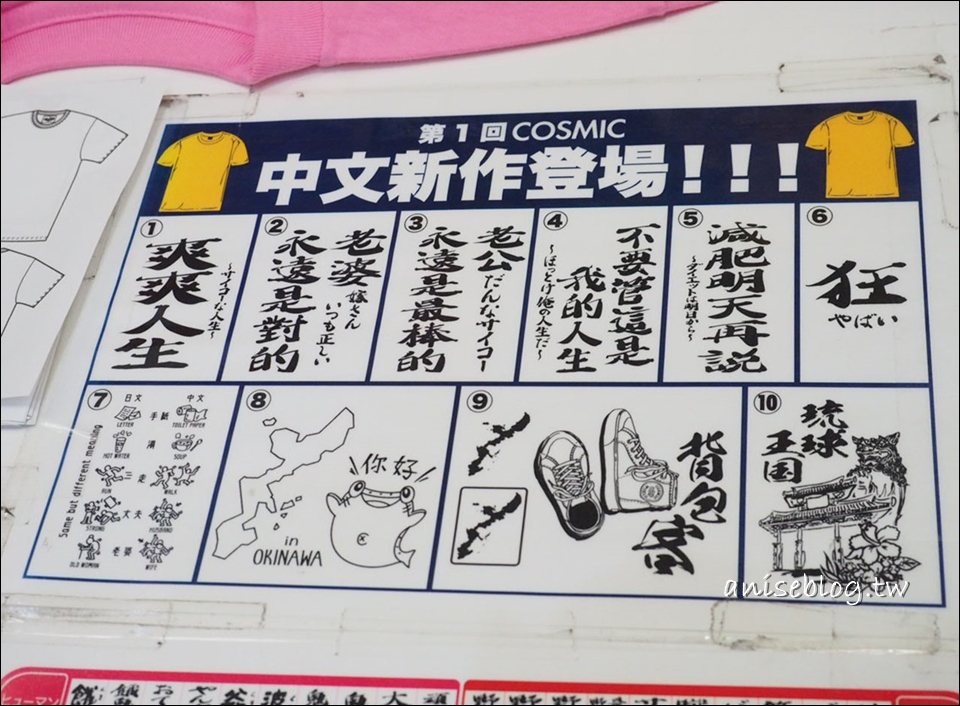 第1回 COSMIC
中文新作登場!!!
①
爽爽人生
~サイコーな人生~
②
老婆 嫁さん
いつも正しい
永遠是對的
③
老公 だんなサイコー
永遠是最棒的
④
不要管這是
我的人生
~ほっとけ俺の人生だ~
⑤
減肥明天再説
~ダイエットは明日から~
⑥
狂
やばい
⑦
Same but different meaning
日文 中文
手紙
LETTER TOILET PAPER
湯
HOT WATER SOUP
走
RUN WALK
大夫
STRONG HUSBAND
老婆
OLD WOMAN WIFE
⑧
你好
in
OKINAWA
⑨
背包客
⑩
琉球
王国
aniseblog.tw
ヒューマン